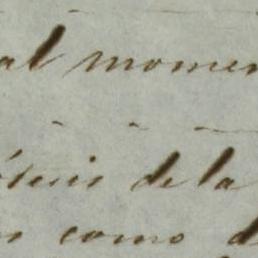 al momen
ótesis de la
como d